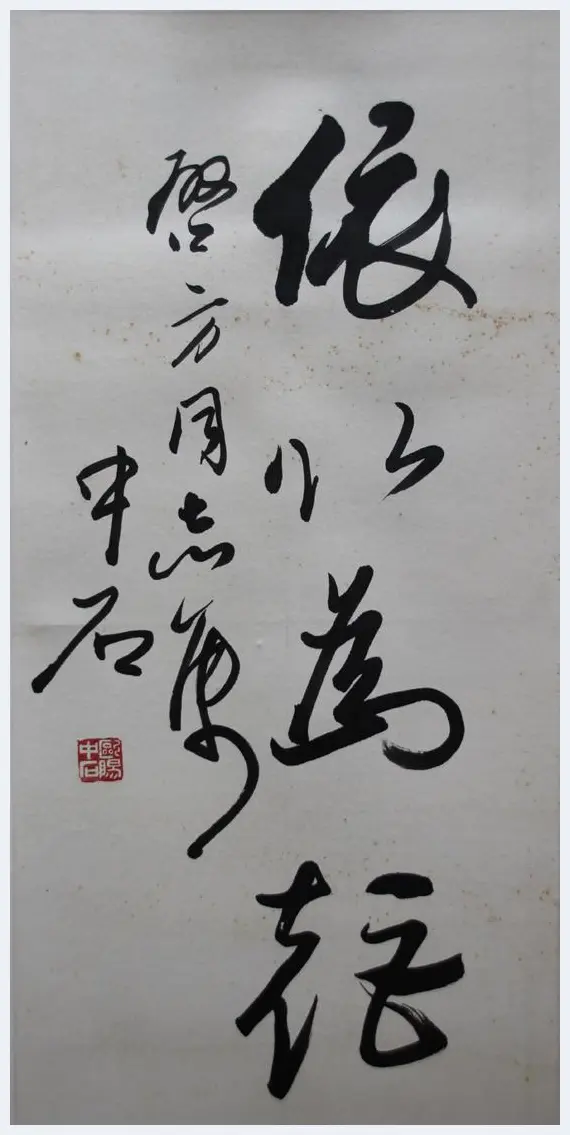 依以為
啓方同志属
中石
歐陽
中石